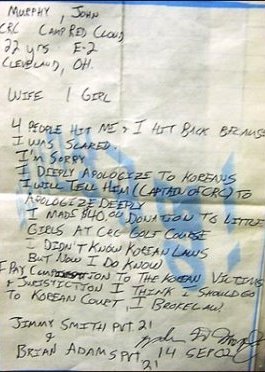 MURPHY, JOHN
CRC CAMP RED CLOUD
22 YRS E-2
CLEVELAND, OH.
WIFE 1 GIRL
4 PEOPLE HIT ME & I HIT BACK BECAUSE
I WAS SCARED.
I'M SORRY
I DEEPLY APOLOGIZE TO KOREANS
I WILL TELL HIM (CAPTAIN OF CRC) TO
APOLOGIZE DEEPLY
I MADE $40.00 DONATION TO LITTLE
GIRLS AT CRC GOLF COURSE
I DIDN'T KNOW KOREAN LAWS
BUT NOW I DO KNOW
I PAY TO THE KOREAN VICTIMS
& JURISTICTION I THINK I SHOULD GO
TO KOREAN COURT, I BROKE LAW.
JIMMY SMITH PVT 21
&
BRIAN ADAMS PVT 14 SEP 02
21